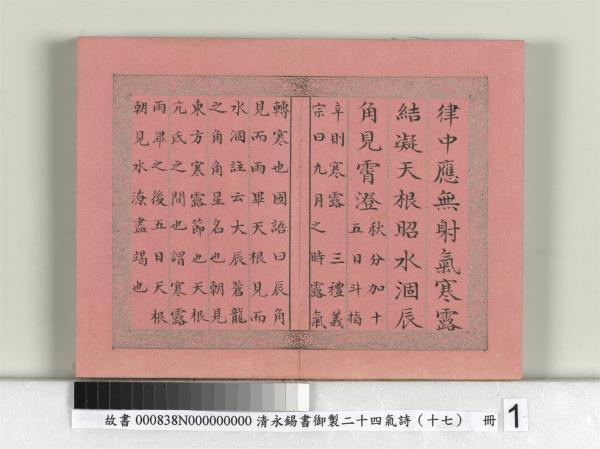 律中應無射氣寒露
結凝天根昭水涸辰
角見霄澄秋分加十五日斗指
辛則寒露 三禮義
宗曰九月之時露氣
轉寒也國語曰辰角
見而雨畢天根見而
水涸註云大辰蒼龍
之角角星名也朝見
東方寒露節也天根
亢氐之間也謂寒露
雨畢之後五日天根
朝見水潦盡竭也
故書 000838N000000000 清永錫書御製二十四氣詩（十七） 冊 1